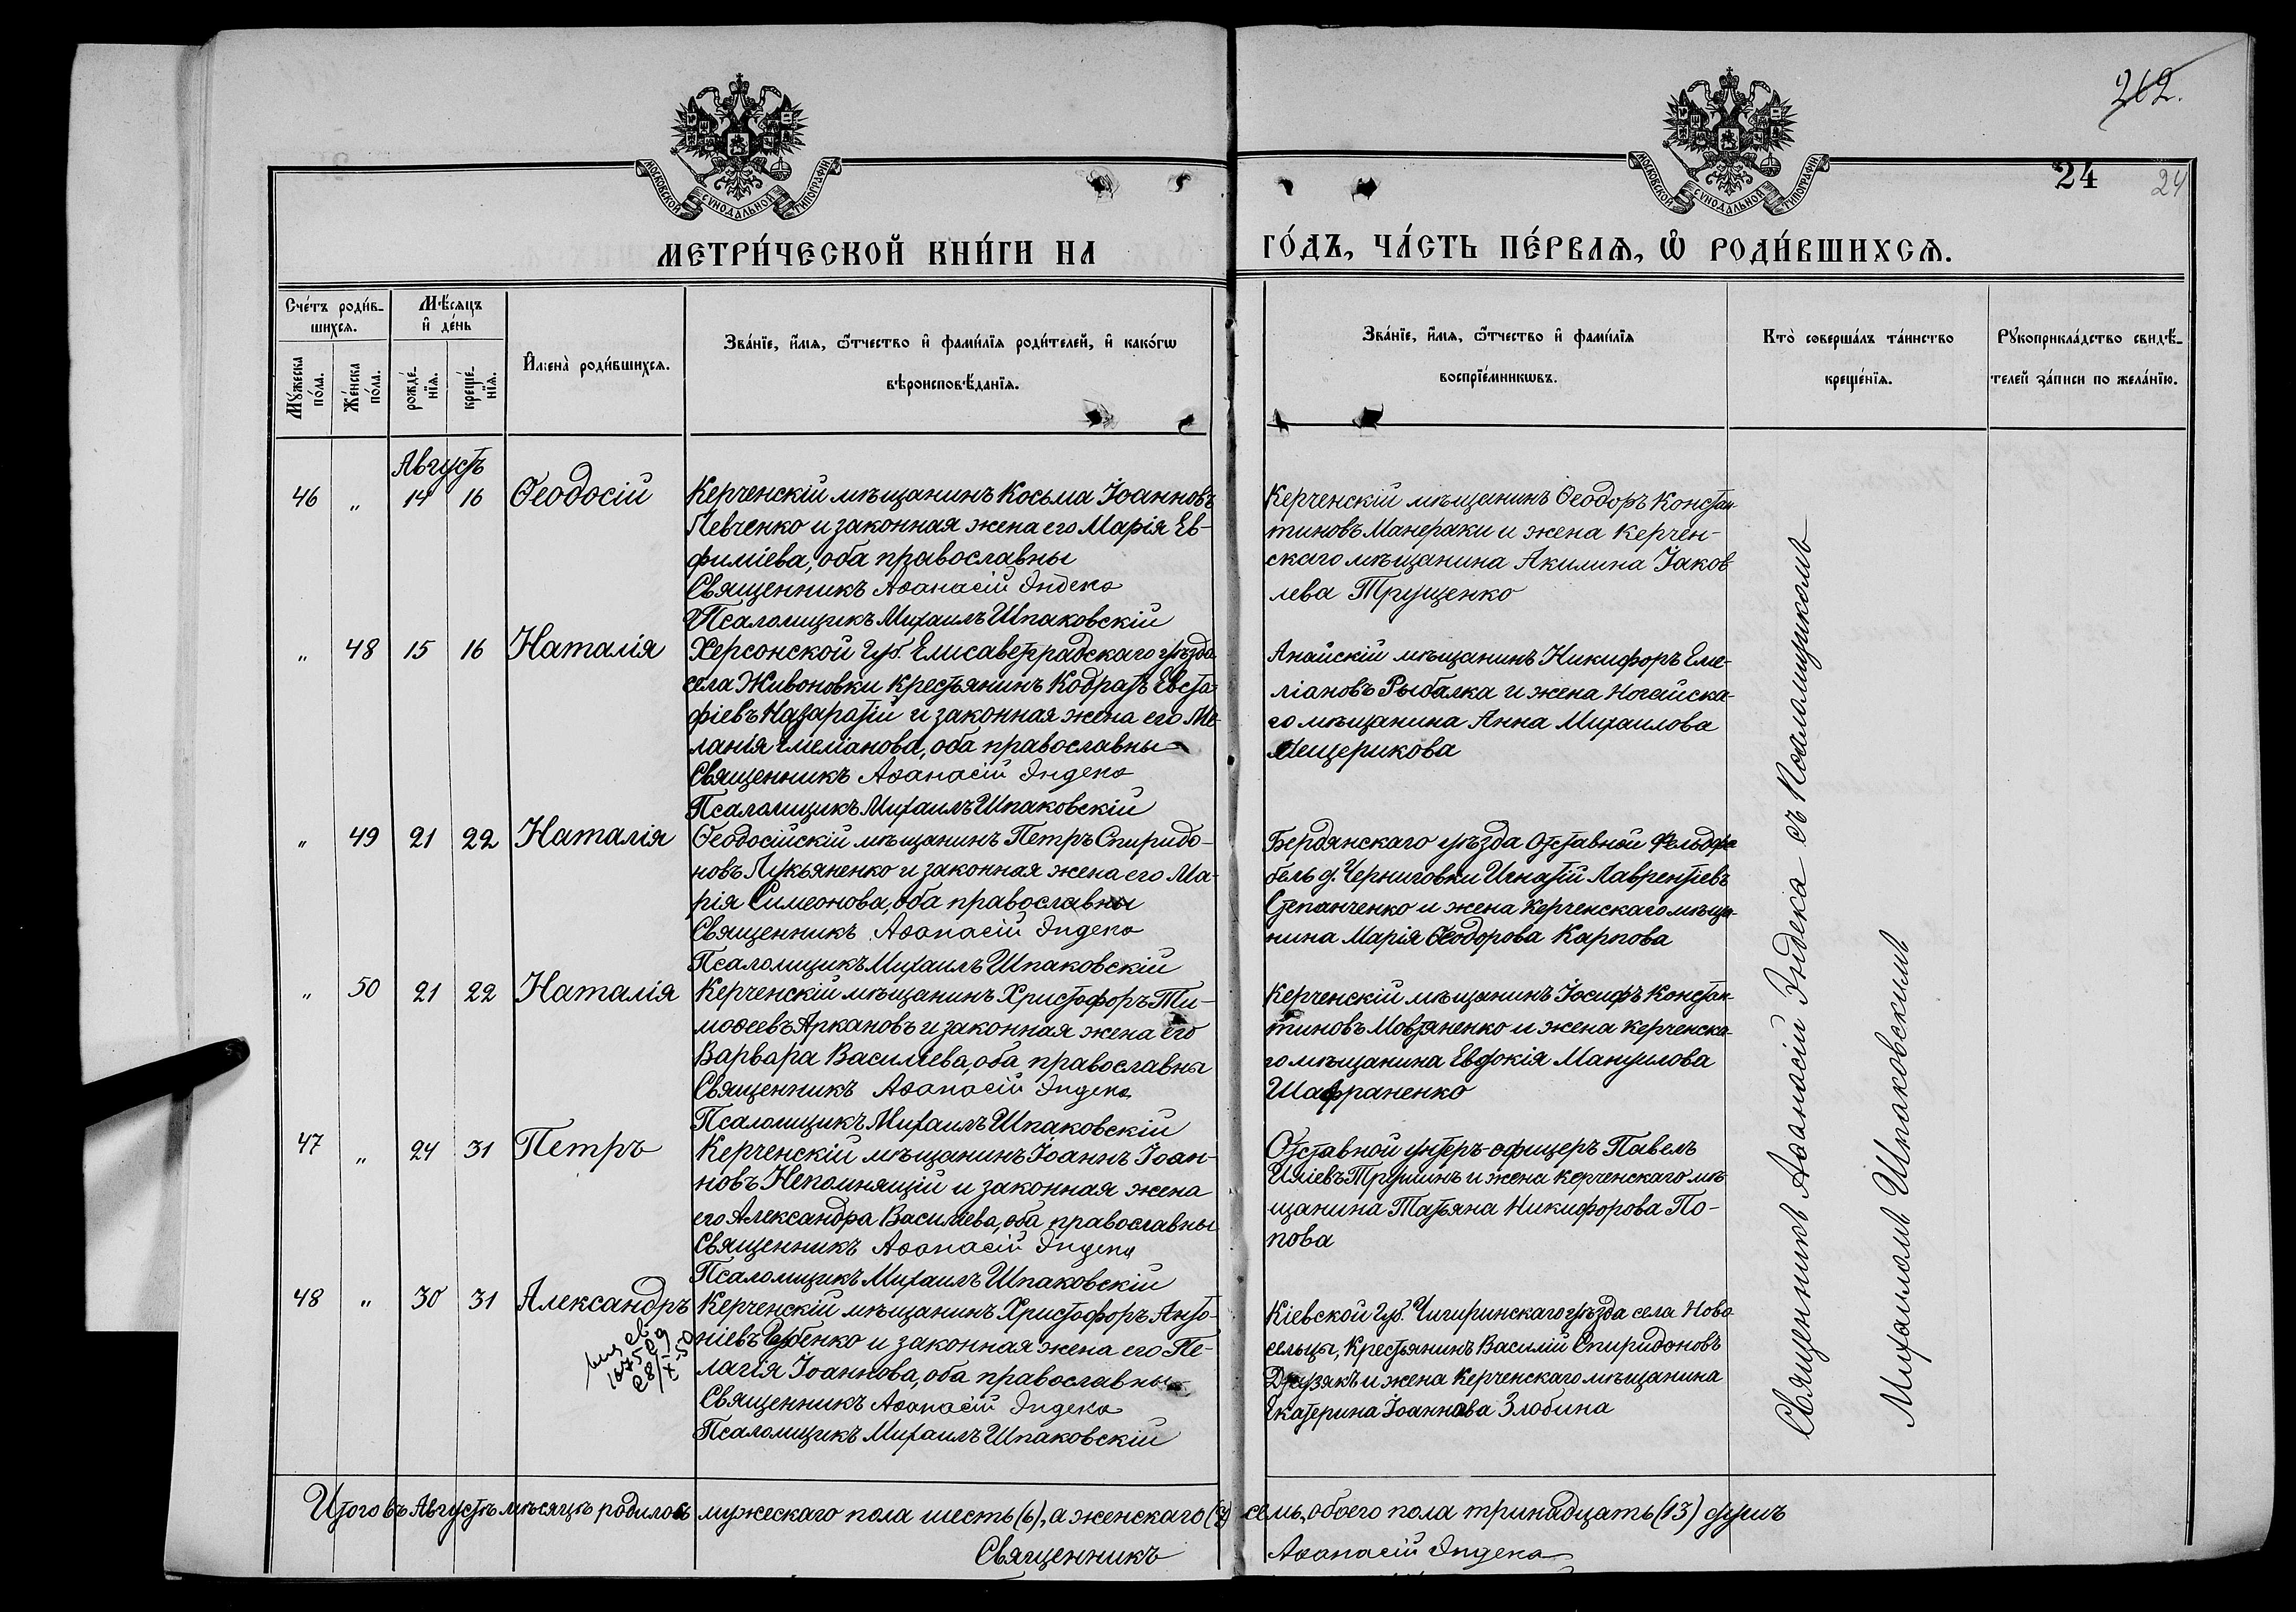 262.
24
24
МОСКОВСКОЙ СУНОДАЛЬНОЙ ТИПОГРАФІИ
МОСКОВСКОЙ СУНОДАЛЬНОЙ ТИПОГРАФІИ
МЕТРИ́ЧЕСКОЙ КНИ́ГИ НА
ГО́ДЪ, ЧА́СТЬ ПЕ́РВАѦ, Ѡ҆ РОДИ́ВШИХСѦ.
Сче́тъ роди́в-
шихсѧ.
Мꙋ́жеска
по́ла.
Же́нска
по́ла.
Мѣ́сѧцъ
и҆ де́нь
рожде́-
нїѧ.
креще́-
нїѧ.
И҆мена̀ роди́вшихсѧ.
Зва́нїе, и҆́мѧ, ѻ҆́тчество и҆ фами́лїѧ роди́телей, и҆ како́гѡ
вѣроисповѣ́данїѧ.
Зва́нїе, и҆́мѧ, ѻ҆́тчество и҆ фами́лїѧ
воспрїе́мникѡвъ.
Кто̀ соверша́лъ та́инство
креще́нїѧ.
Рꙋкоприкла́дство свидѣ́-
телей за́писи по жела́нїю.
Августъ
46 „ 14 16 Ѳеодосій
Керченскій мѣщанинъ Косьма Іоанновъ
Левченко и законная жена его Марія Ев-
фиміева, оба православны
Священникъ Аѳанасій Индека
Псаломщикъ Михаилъ Шпаковскій
Керченскій мѣщанинъ Ѳеодоръ Констан-
тиновъ Манераки и жена Керчен-
скаго мѣщанина Акилина Іаков
лева Трущенко
„ 48 15 16 Наталія
Херсонской Губ. Елисаветградскаго уѣзда
села Живоновки крестьянинъ Кодратъ Евста-
фіевъ Назаратій и законная жена его Ме-
ланія Емеліанова, оба православны
Священникъ Аѳанасій Индека
Псаломщикъ Михаилъ Шпаковскій
Анайскій мѣщанинъ Никифоръ Еме-
ліановъ Рыбалка и жена Ногайска-
го мѣщанина Анна Михаилова
Мещерикова
„ 49 21 22 Наталія
Ѳеодосійскій мѣщанинъ Петръ Спиридо-
новъ Лукьяненко и законная жена его Ма-
рія Симеонова, оба православны
Священникъ Аѳанасій Индека
Псаломщикъ Михаилъ Шпаковскій
Бердянскаго уѣзда Отставной Фельдфе
бель д. Черниговки Игнатій Лаврентіевъ
Степанченко и жена Керченскаго мѣща-
нина Марія Ѳеодорова Карпова
„ 50 21 22 Наталія
Керченскій мѣщанинъ Христофоръ Ти-
моѳеевъ Аркановъ и законная жена его
Варвара Васильева, оба православны
Священникъ Аѳанасій Индека
Псаломщикъ Михаилъ Шпаковскій
Керченскій мѣщанинъ Іосифъ Констан-
тиновъ Мовряненко и жена керченска-
го мѣщанина Евдокія Мануилова
Шафраненко
47 „ 24 31 Петръ
Керченскій мѣщанинъ Іоаннъ Іоан-
новъ Непомнящій и законная жена
его Александра Васильева, оба православны
Священникъ Аѳанасій Индека
Псаломщикъ Михаилъ Шпаковскій
Отставной унтеръ-офицеръ Павелъ
Иліевъ Трушинъ и жена керченскаго мѣ
щанина Татьяна Никифорова По-
пова
48 „ 30 31 Александръ
Керченскій мѣщанинъ Христофоръ Анто-
ніевъ Губенко и законная жена его Пе-
лагія Іоаннова, оба православны
Священникъ Аѳанасій Индека
Псаломщикъ Михаилъ Шпаковскій
Кіевской Губ. Чигиринскаго уѣзда села Ново
сельцы, Крестьянинъ Василій Спиридоновъ
Друзякъ и жена Керченскаго мѣщанина
Екатерина Іоаннова Злобина
Священникъ Аѳанасій Индека съ Псаломщикомъ
Михаиломъ Шпаковскимъ
Итого въ Августѣ мѣсяцѣ родилось мужескаго пола шесть (6), а женскаго (7) семь, обоего пола тринадцать (13) душъ
Священникъ Аѳанасій Индека